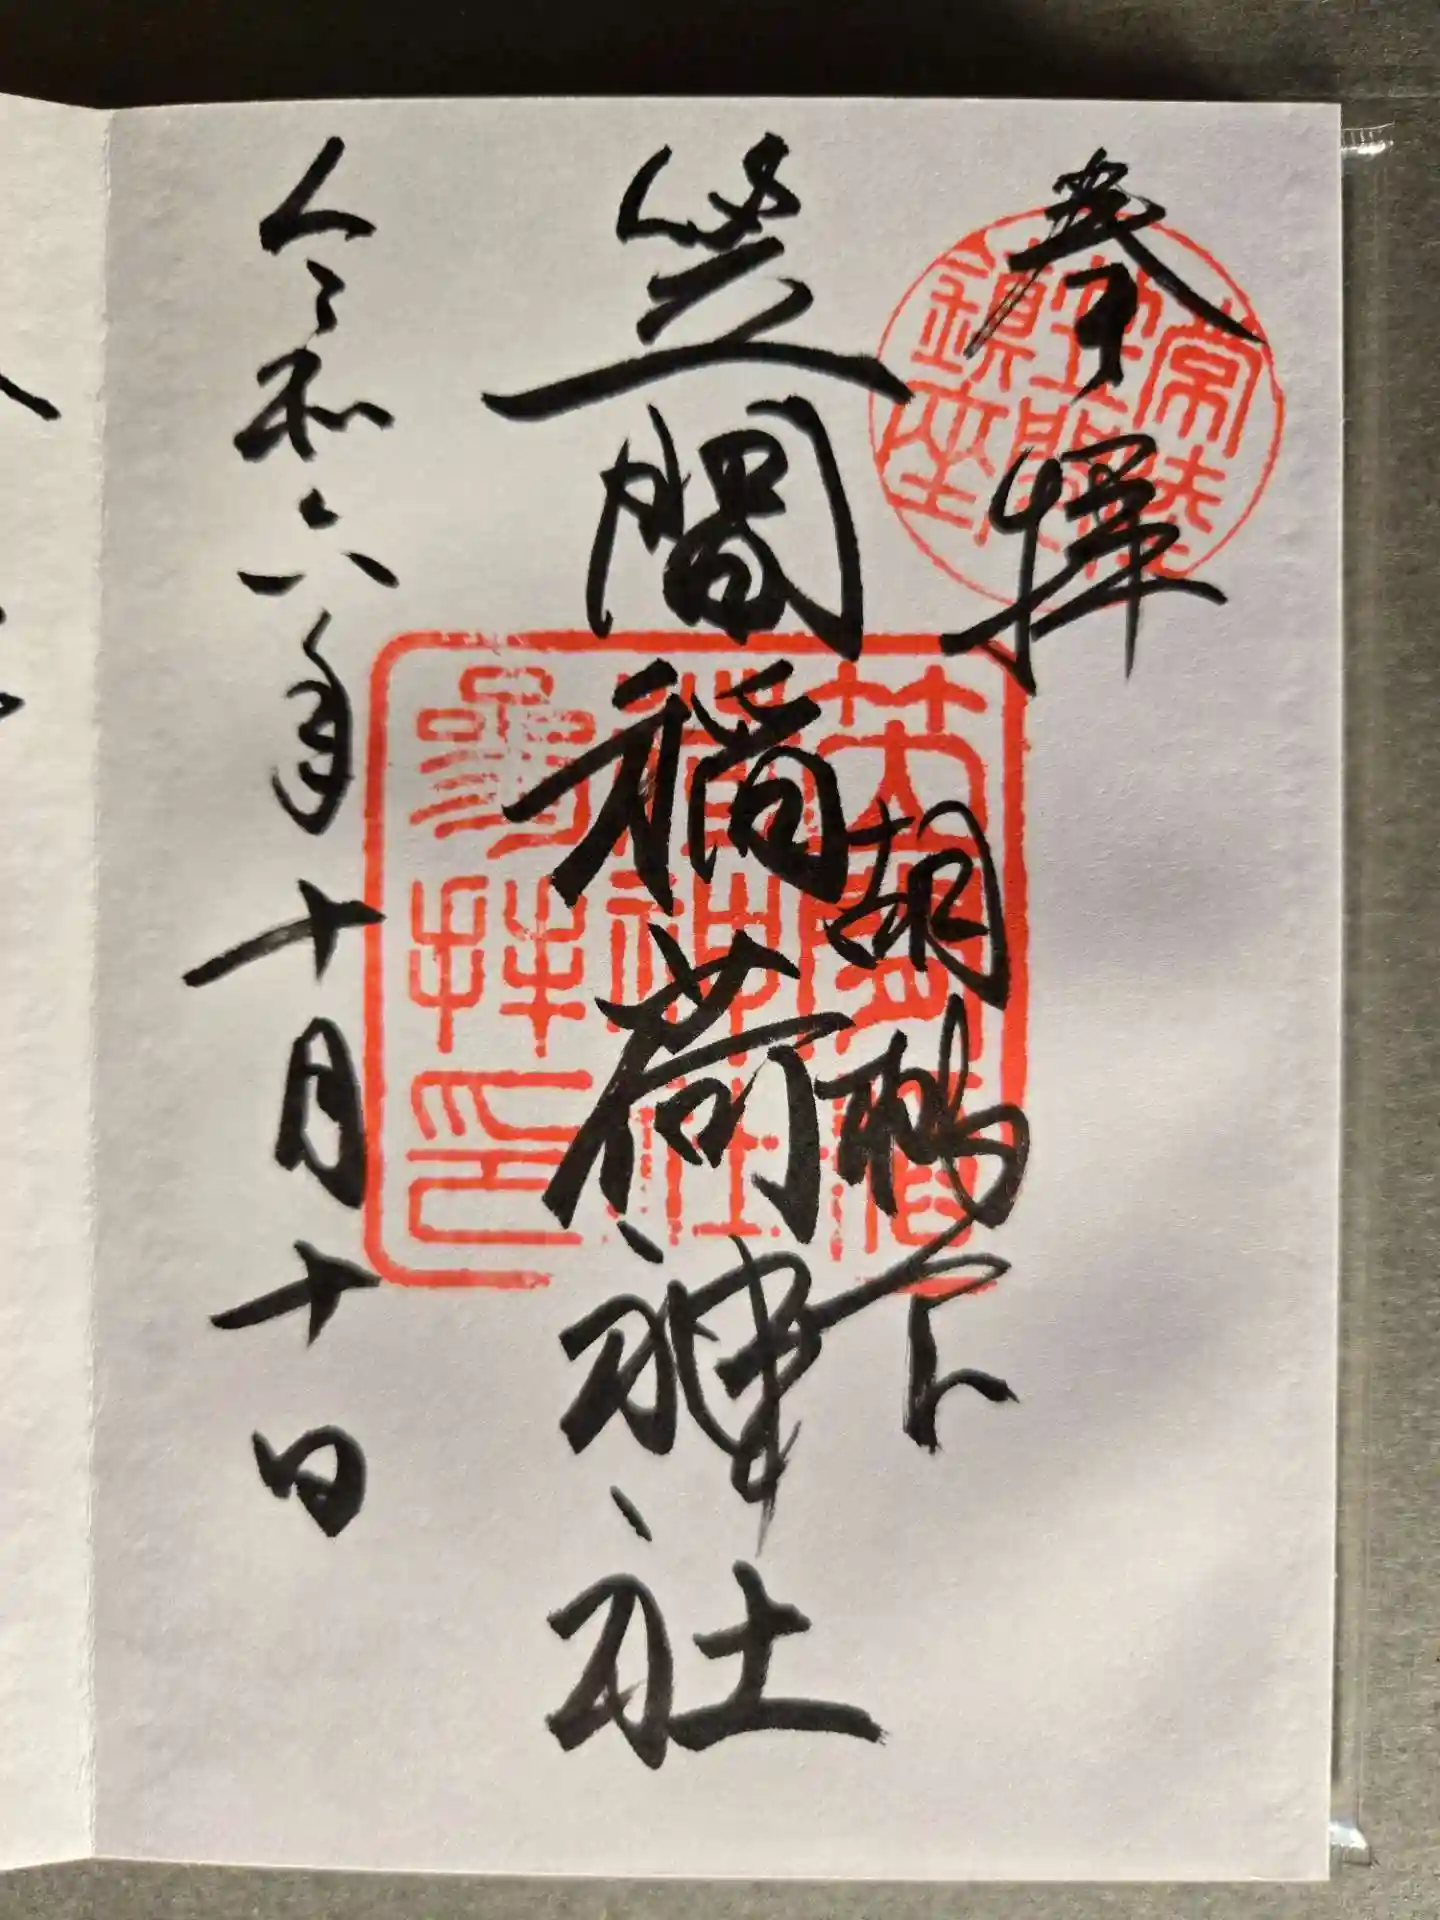 奉拝
常陸
笠間
鎮座
胡桃下
笠間稲荷神社
笠間稲
荷神社
參拝印
令和六年十月十日